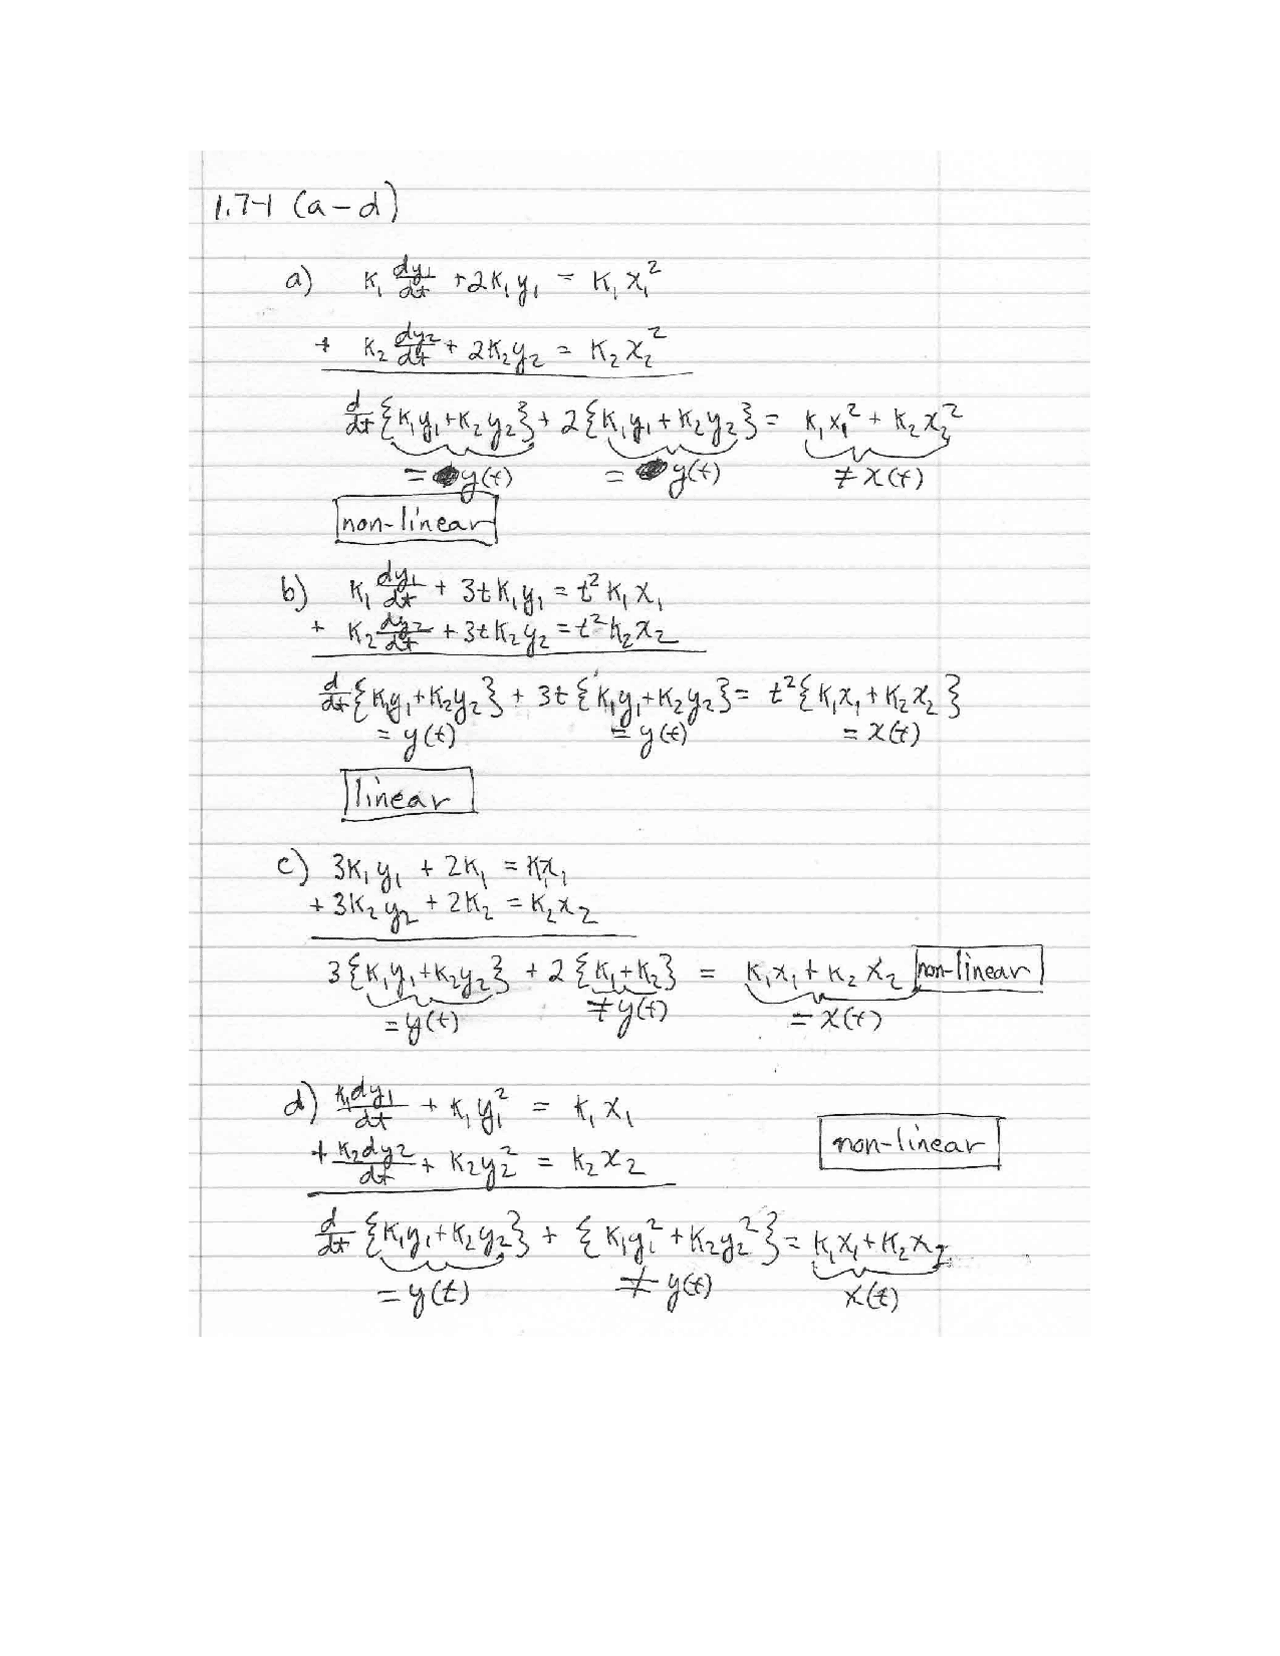 1.7-1 (a-d)
a) K₁ dy₁/dt + 2K₁y₁ = K₁x₁²
+ K₂ dy₂/dt + 2K₂y₂ = K₂x₂²
d/dt {K₁y₁+K₂y₂} + 2{K₁y₁+K₂y₂} = K₁x₁² + K₂x₂²
= y(t) = y(t) ≠ x(t)
non-linear
b) K₁ dy₁/dt + 3tK₁y₁ = t²K₁x₁
+ K₂ dy₂/dt + 3tK₂y₂ = t²K₂x₂
d/dt {K₁y₁+K₂y₂} + 3t{K₁y₁+K₂y₂} = t²{K₁x₁+K₂x₂}
= y(t) = y(t) = x(t)
linear
c) 3K₁y₁ + 2K₁ = K₁x₁
+ 3K₂y₂ + 2K₂ = K₂x₂
3{K₁y₁+K₂y₂} + 2{K₁+K₂} = K₁x₁ + K₂x₂ non-linear
= y(t) ≠ y(t) = x(t)
d) K₁dy₁/dt + K₁y₁² = K₁x₁
+ K₂dy₂/dt + K₂y₂² = K₂x₂ non-linear
d/dt {K₁y₁+K₂y₂} + {K₁y₁²+K₂y₂²} = K₁x₁+K₂x₂
= y(t) ≠ y(t) x(t)